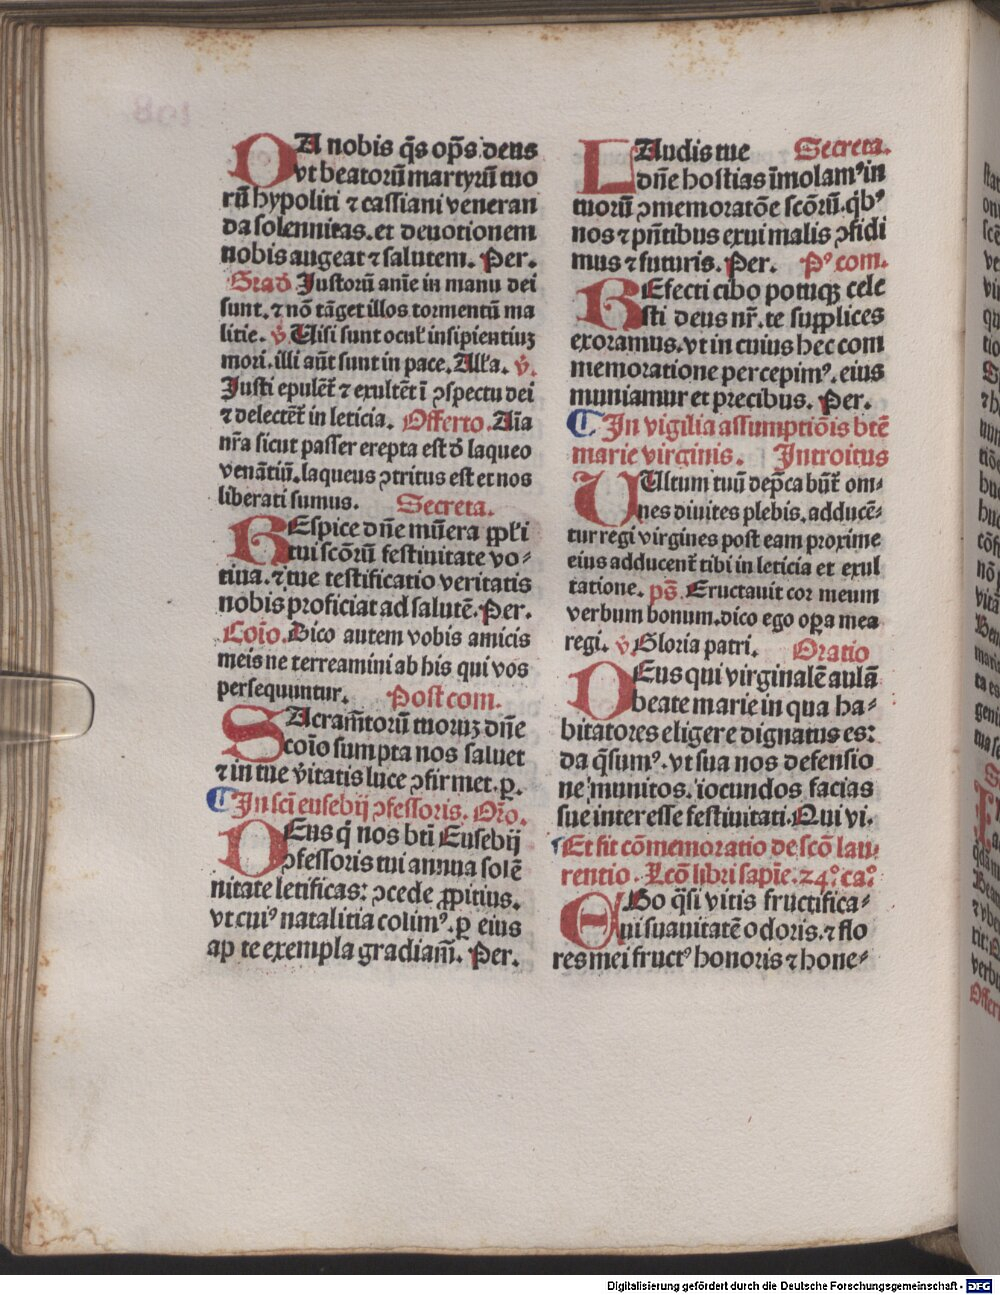 DA nobis q̄s op̄s deus
vt beatorū martyrū tuo
rū hypoliti ⁊ cassiani veneran
da solennitas. et deuotionem
nobis augeat ⁊ salutem. Per.
Grad̄ Justorū anīe in manu dei
sunt. ⁊ nō tāget illos tormentū ma
litie. v̄. Uisi sunt ocul' insipientiuʒ
mori. illi aūt sunt in pace. All'a. v̄.
Justi epulēt̄ ⁊ exultēt ī ꝯspectu dei
⁊ delectēt̄ in leticia. Offerto. Aīa
nr̄a sicut passer erepta est d̄ laqueo
venātiū. laqueus ꝯtritus est et nos
liberati sumus. Secreta.
REspice dn̄e mūera ꝓpl'i
tui scōrū festiuitate vo-
tiua. ⁊ tue testificatio veritatis
nobis proficiat ad salutē. Per.
Coīo. Dico autem vobis amicis
meis ne terreamini ab his qui vos
persequuntur. Post com.
SAcram̄torū tuoruʒ dn̄e
coīo sumpta nos saluet
⁊ in tue v̄itatis luce ꝯfirmet. ꝑ.
¶ In scī eusebij ꝯfessoris. Or̄o.
DEus q̄ nos bt̄i Eusebij
ꝯfessoris tui annua solē
nitate letificas: ꝯcede ꝓpitius.
vt cuiꝰ natalitia colimꝰ. ꝑ eius
ap te exempla gradiam̄. Per.
LAudis tue Secreta.
dn̄e hostias īmolamꝰ in
tuorū ꝯmemoratōe scōrū. q̄bꝰ
nos ⁊ pn̄tibus exui malis ꝯfidi
mus ⁊ futuris. Per. Pꝰ com.
REfecti cibo potuqʒ cele
sti deus nr̄. te supplices
exoramus. vt in cuius hec com
memoratione percepimꝰ. eius
muniamur et precibus. Per.
¶ In vigilia assumptiōis btē
marie virginis. Introitus
UUltum tuū dep̄ca būt̄ om-
nes diuites plebis. adducē-
tur regi virgines post eam proxime
eius adducent̄ tibi in leticia et exul
tatione. ps̄. Eructauit cor meum
verbum bonum. dico ego oꝑa mea
regi. v̄. Gloria patri. Oratio
DEus qui virginalē aulā
beate marie in qua ha-
bitatores eligere dignatus es:
da q̄sumꝰ. vt sua nos defensio
ne munitos. iocundos facias
sue interesse festiuitati. Qui vi.
¶ Et fit cōmemoratio de scō lau-
rentio. Lcō libri sapīe. 24.° ca°
EGo q̄si vitis fructifica-
ui suauitatē odoris. ⁊ flo
res mei fructꝰ honoris ⁊ hone-
Digitalisierung gefördert durch die Deutsche Forschungsgemeinschaft - DFG